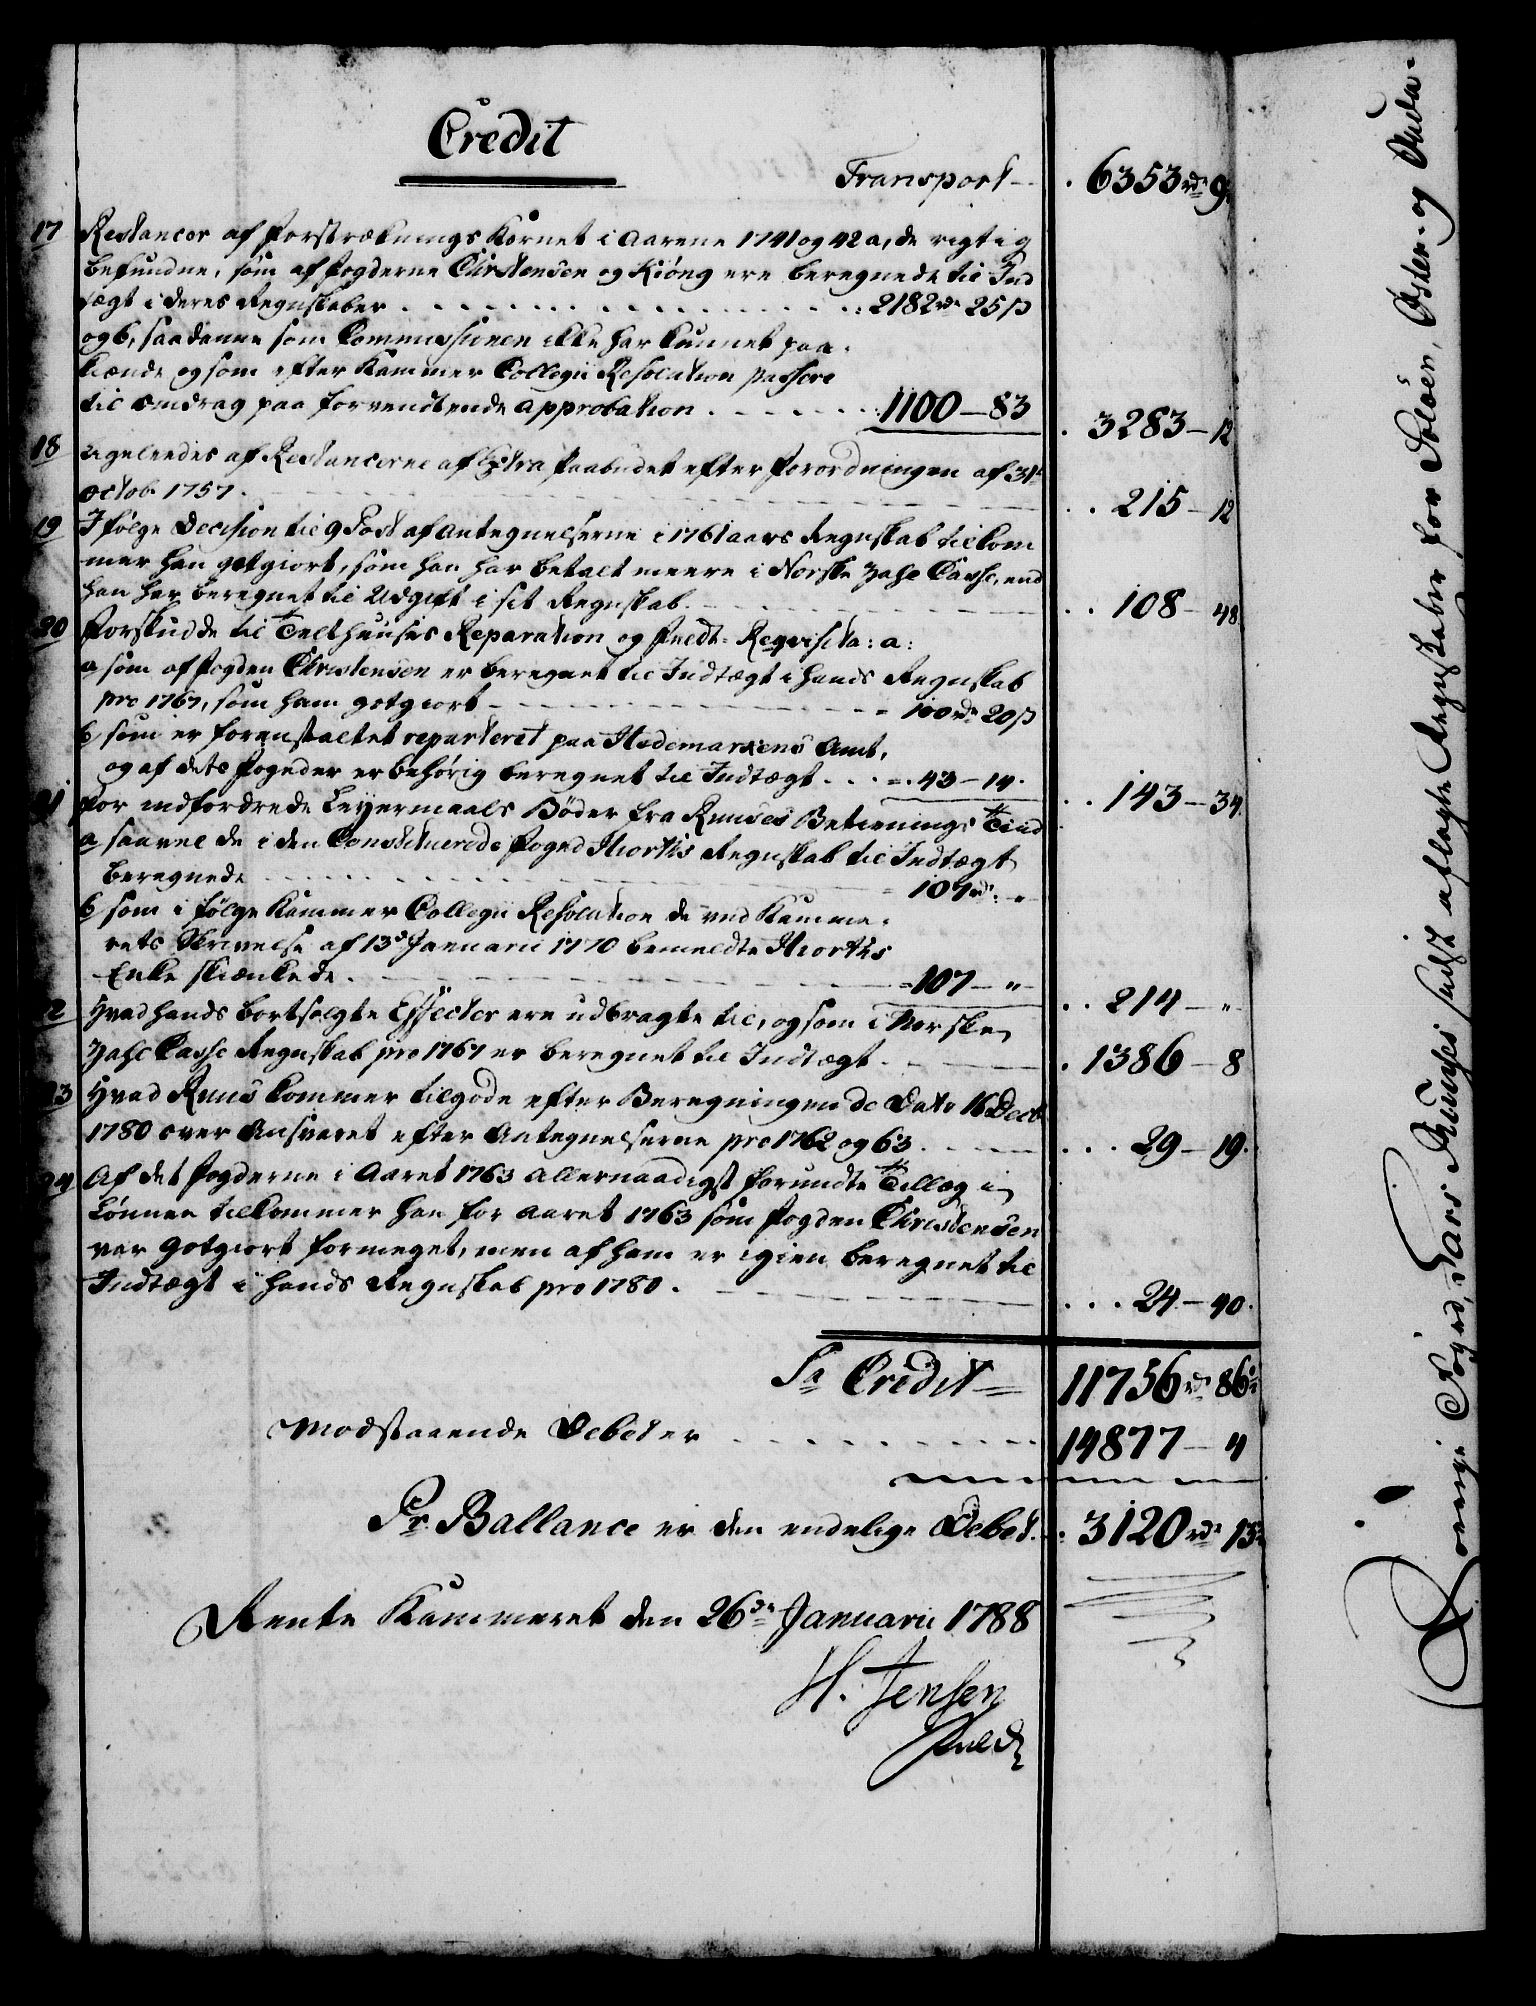 Credit
Transport 6353 rd 9
17 Restancer af Forstræknings Kornet i Aarene 1741 og 42 a, de rigtig
befundne, som af Fogderne Christensen og Kiöng ere beregnede til Ind
tægt i deres Regnskaber 2182 rd 25 ß
og b, saadanne som Commissionen ikke har kunnet paa-
kiænde og som efter Kammer Collegii Resolution passere
til Omdrag paa forvendtende Approbation 1100 - 83 3283 - 12
18 Ligeledes af Restancerne af Extra Paabudet efter Forordningen af 31
Octob. 1757 215 - 12
19 I følge Decision til 9 Post af Antegnelserne i 1761 aars Regnskab tilkom
mer han gotgiort, som han har betalt meere i Norske Zahl Casse, end
han har beregnet til Udgift i sit Regnskab 108 - 48
20 Forskudde til Telthuuses Reparation og Feldt-Reqvisita: a:
a som af Fogden Christensen er beregnet til Indtægt i hands Regnskab
pro 1767, som ham gotgiort 100 rd 20 ß
b som er foranstaltet reparteret paa Hedemarkens Amt,
og af dets Fogeder er behörig beregnet til Indtægt 43 - 14. 143 - 34.
21 For indfordrede Leyermaals Böder fra Ruuses Betienings Tiid
a saavel de i den Constituerede Foged Hiorths Regnskab til Indtægt
beregnede 107 rd "
b som i fölge Kammer Collegii Resolution de ved Kamme-
rets Skrivelse af 13de Januarii 1770 bemeldte Hiorths
Enke skiænkede 107 - " 214 - "
2 Hvad hands bortsolgte Effecter ere udbragte til, og som i Norske
Zahl Casse Regnskab pro 1767 er beregnet til Indtægt 1386 - 8
23 Hvad Ruus kommer tilgode efter Beregningen de Dato 16 Decb
1780 over Ansvaret efter Antegnelserne pro 1762 og 63 29 - 19.
24 Af det Fogderne i Aaret 1763 allernaadigst forundte Tillæg i
Lönnen tilkommer han for Aaret 1763 som Fogden Christensen
var gotgiort formeget, men af ham er igien beregnet til
Indtægt i hands Regnskab pro 1780. 24 - 40.
Sa Credit 11756 rd 86
Modstaaende Debet er 14877 - 4
Pr Ballance er den endelige Debet 3120 rd 13
Rente Kammeret den 26de Januarii 1788
H. Jensen
Foged Lars Ruuses sidst aflagte Regnskaber for Soløer, Øster- og Ouda-